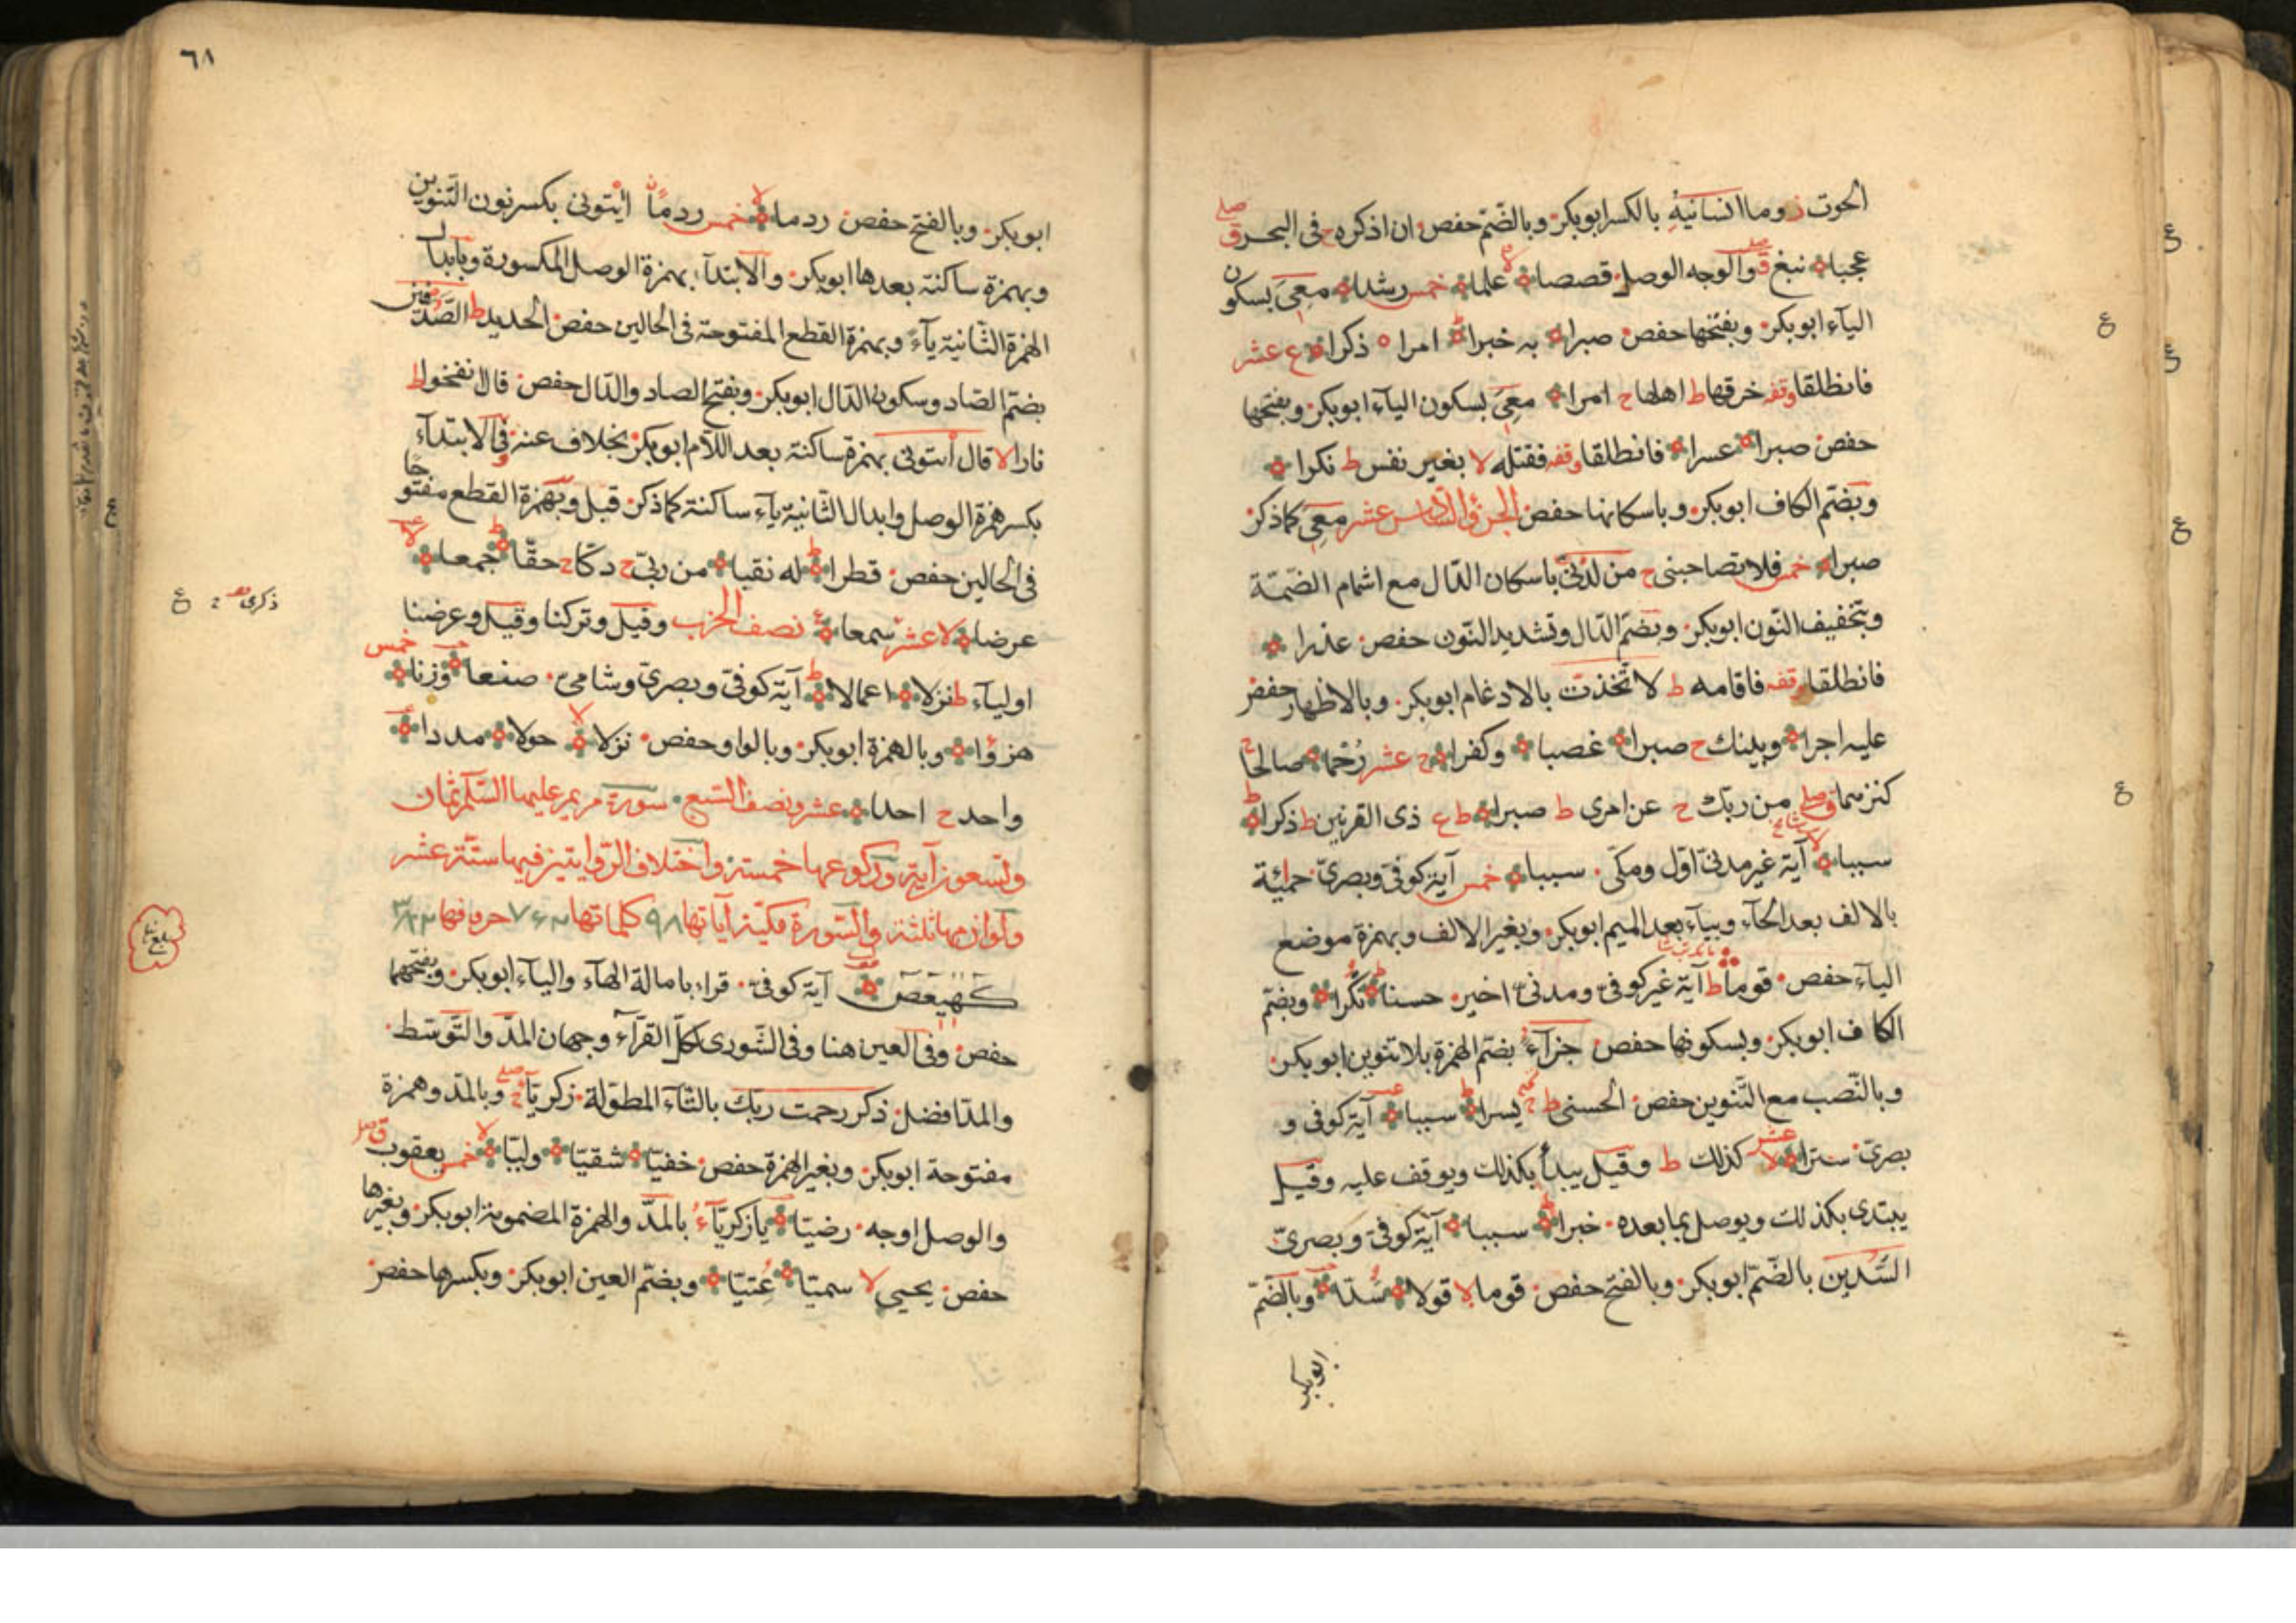 الحوت ز وما انسانيهِ بالكسر ابوبكر وبالضّم حفص ان اذكره ج فى البحر ق صلے
عجبا نبغ ق صلے والوجه الوصل قصصا لا علما خمس رشدا معِىَ بسكون
اليآء ابوبكر وبفتحها حفص صبرا به خبرا ط امرا ه ذكرا ع عشر
فانطلقا وقفه خرقها ط اهلها ج امرا معِىَ بسكون اليآء ابوبكر وبفتحها
حفص صبرا عسرا فانطلقا وقفه فقتله لا بغير نفس ط نكرا
وبضّم الكاف ابوبكر وباسكانها حفص الجزؤ السّادس عشر معِىَ كما ذكر
صبرا خمس فلا تصاحبنى ج من لدُنّى باسكان الدّال مع اشمام الضّمّة
وبتخفيف النّون ابوبكر وبضمّ الدّال وتشديد النّون حفص عذرا
فانطلقا وقفه فاقامه ط لاتّخذتّ بالادغام ابوبكر وبالاظهار حفص
عليه اجرا وبينك ج صبرا غصبا وكفرا ج عشر رُحْما صالحا
كنزهما ق صلے من ربّك ج عن امرى ط صبرا ط ع ذى القرنين ط ذكرا ط
سببا لا آية غير مدنىّ اوّل ومكّى سببا خمس آية كوفىّ وبصرىّ حمئة
بالالف بعد الحآء وبيآء بعد الميم ابوبكر وبغير الالف وبهمزة موضع
اليآء حفص قوما ط آية غير كوفىّ ومدنىّ اخير حسنا نُكُرا وبضمّ
الكاف ابوبكر وبسكونها حفص جزآءُ بضمّ الهمزة بلا تنوين ابوبكر
وبالنّصب مع التّنوين حفص الحسنى ط ج يسرا ط سببا آية كوفى و
بصرىّ سترا لا عشر كذلك ط وقيل يبدأ بكذلك ويوقف عليه وقيل
يبتدى بكذلك ويوصل بما بعده خبرا ط سببا آية كوفىّ وبصرىّ
السُّدين بالضّمّ ابوبكر وبالفتح حفص قوما لا قولا سُدّا وبالضّمّ
ابوبكر
٦٨
ابوبكر وبالفتح حفص ردما لا خمس ردماً ائتونى بكسر نون التّنوين
وبهمزة ساكنة بعدها ابوبكر والابتدآء بهمزة الوصل المكسورة وبابدال
الهمزة الثّانية يآء وبهمزة القطع المفتوحة فى الحالين حفص الحديد ط الصّدفين
بضمّ الصّاد وسكون الدّال ابوبكر وبفتح الصاد والدّال حفص قال انفخوا ط
نارا لا قال ائتونى بهمزة ساكنة بعد اللّام ابوبكر بخلاف عنه وفى الابتدآء
بكسر همزة الوصل وابدال الثّانية يآء ساكنة كما ذكر قبل وبهمزة القطع مفتوحا
فى الحالين حفص قطرا ط له نقبا من ربّى ج دكّا ج حقّا ط جمعا لا
عرضا لا عشر سمعا نصف الحزب وقيل وتركنا وقيل وعرضنا
اوليآء ط نزلا اعمالا ط آية كوفىّ وبصرىّ وشامىّ صنعا وزنا خمس
هزؤا وبالهمزة ابوبكر وبالواو حفص نزلا لا حولا مددا
واحد ج احدا عشر ونصف السّبع سورة مريم عليها السّلام ثمان
وتسعون آية وركوعها خمسة واختلاف الرّوايتين فيها ستّة عشر
والوانها ثلثة والسّورة مكّيّة آياتها ٩٨ كلماتها
كهيعص آية كوفىّ قراء بامالة الهآء واليآء ابوبكر وبفتحهما
حفص وفى العين هنا وفى الشّورى لكلّ القرّآء وجهان المدّ والتّوسّط
والمدّ افضل ذكر رحمت ربّك بالتّآء المطوّلة زكريّآء ج صلے وبالمدّ وهمزة
مفتوحة ابوبكر وبغير الهمزة حفص خفيّا شقيّا وليّا لا خمس يعقوب ق صلے
والوصل اوجه رضيّا يازكريّآءُ بالمدّ والهمزة المضمومة ابوبكر وبغيرها
حفص يحيى لا سميّا عُتيّا وبضمّ العين ابوبكر وبكسرها حفص